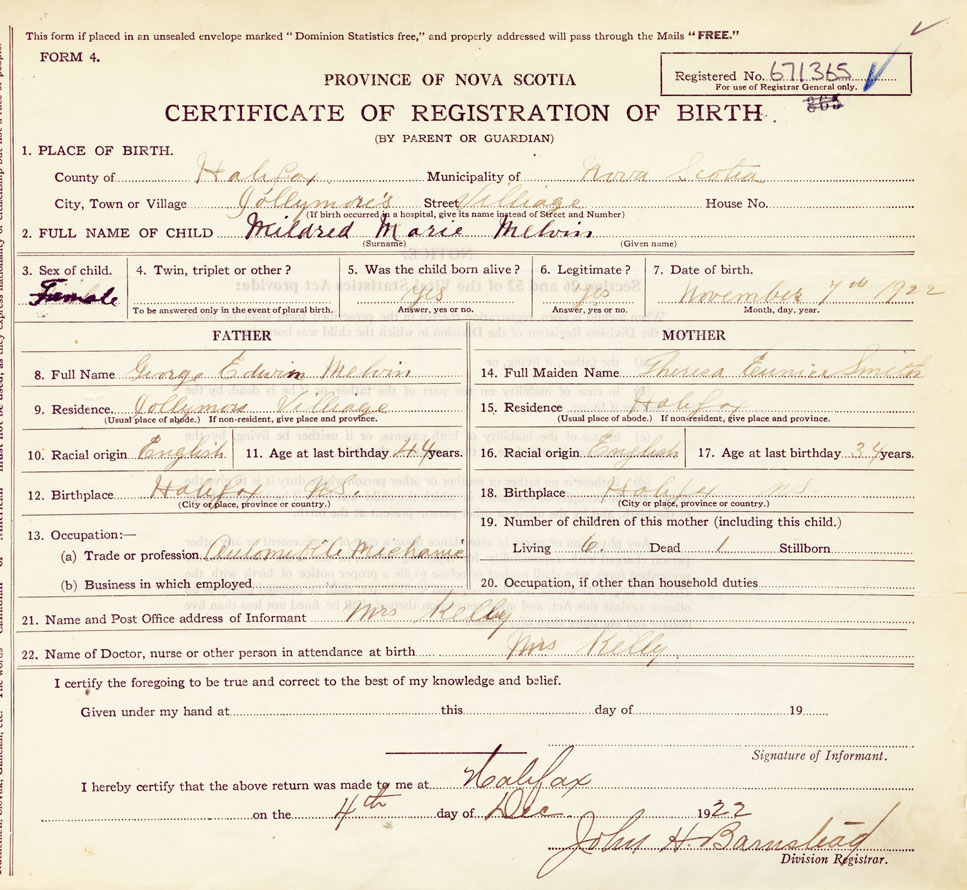 This form if placed in an unsealed envelope marked "Dominion Statistics free," and properly addressed will pass through the Mails "FREE."
FORM 4.
Registered No. 671365
For use of Registrar General only.
365
PROVINCE OF NOVA SCOTIA
CERTIFICATE OF REGISTRATION OF BIRTH
(BY PARENT OR GUARDIAN)
1. PLACE OF BIRTH.
County of Halifax Municipality of Nova Scotia
City, Town or Village Jollymore's Street Villiage House No.
(If birth occurred in a hospital, give its name instead of Street and Number)
2. FULL NAME OF CHILD Mildred Marie Melvin
(Surname) (Given name)
3. Sex of child. 4. Twin, triplet or other? 5. Was the child born alive? 6. Legitimate? 7. Date of birth.
Female yes yes November 7th 1922
To be answered only in the event of plural birth. Answer, yes or no. Answer, yes or no. Month, day, year.
FATHER
8. Full Name George Edwin Melvin
9. Residence. Jollymors Villiage
(Usual place of abode.) If non-resident, give place and province.
10. Racial origin English 11. Age at last birthday 44 years.
12. Birthplace Halifax N.S.
(City or place, province or country.)
13. Occupation:—
(a) Trade or profession Automobile Michanic
(b) Business in which employed
MOTHER
14. Full Maiden Name Theresa Eunice Smith
15. Residence Halifax
(Usual place of abode.) If non-resident, give place and province.
16. Racial origin English 17. Age at last birthday 34 years.
18. Birthplace Halifax ns.
(City or place, province or country.)
19. Number of children of this mother (including this child.)
Living 6. Dead 1 Stillborn
20. Occupation, if other than household duties
21. Name and Post Office address of Informant Mrs Kelly
22. Name of Doctor, nurse or other person in attendance at birth Mrs Kelly
I certify the foregoing to be true and correct to the best of my knowledge and belief.
Given under my hand at this day of 19
Signature of Informant.
I hereby certify that the above return was made to me at Halifax
on the 4th day of Dec 1922
John H. Barnstead
Division Registrar.